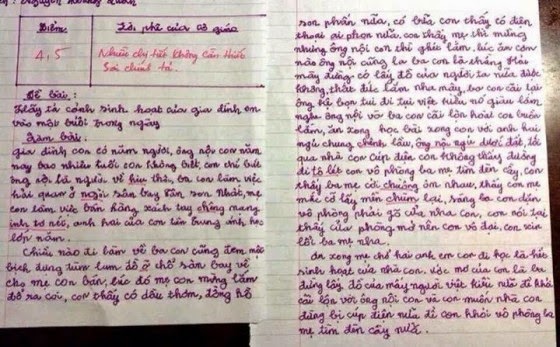 Điểm:
4,5
Lời phê của cô giáo
Nhiều chi tiết không cần thiết
Sai chính tả.
Đề bài:
Hãy tả cảnh sinh hoạt của gia đình em
vào một buổi trong ngày
Làm bài:
gia đình con có năm người, ông nội con năm
nay bao nhiêu tuổi con không biết, con chỉ biết
ông nội là người về hiu thú, ba con làm việc
hải quan ở ngoài sân bay tân sơn Nhất, mẹ
con làm việc bán hàng xách tay chống mạng
inh tơ nét, anh hai của con tên hưng anh học
lớp năm.
Chiều nào đi làm về ba con cũng đem một
bịch đựng tùm lum đồ ở chỗ sân bay về
cho mẹ con bán, lúc đó mẹ con mừng lắm
đổ ra coi, con thấy có dầu thơm, đồng hồ
son phấn nữa, có bữa con thấy có điện
thoại ai phon nữa, con thấy mẹ thì mừng
nhưng ông nội con thì ghíc lắm, lúc ăn cơm
nào ông nội cũng la ba con là thằng Hải
mày đừng có lấy đồ của người ta nữa được
không, thất đức lắm nha mầy, ba con cãi lại
ông kệ bọn tui đi tụi việt kiều nó giàu lắm,
ngày ông nội với ba con cãi lộn hoài con buồn
lắm, ăn xong học bài xong con với anh hai
ngủ chung chênh lầu, ông nội ngủ dưới đất, tối
qua nhà con cúp điện con không thấy đường
đi tè lét con vô phòng ba mẹ tìm đèn cầy, con
thấy ba mẹ cởi chuồng ôm nhau, thấy con mẹ
mắc cỡ lấy mền chùm lại, sáng ba con dặn
vô phòng phải gõ cửa nha con, con nói tại
thấy cửa phòng mở nên con vô đại, con xin
lỗi ba mẹ nha.
ăn xong mẹ chở hai anh em con đi học là hết
sinh hoạt của nhà con. ước mơ của con là ba
đừng lấy đồ của mấy người việt kiều nữa để khỏi
cãi lộn với ông nội con và con muốn nhà con
đừng bị cúp điện nữa để con khỏi vô phòng ba
mẹ tìm đèn cầy nữa.